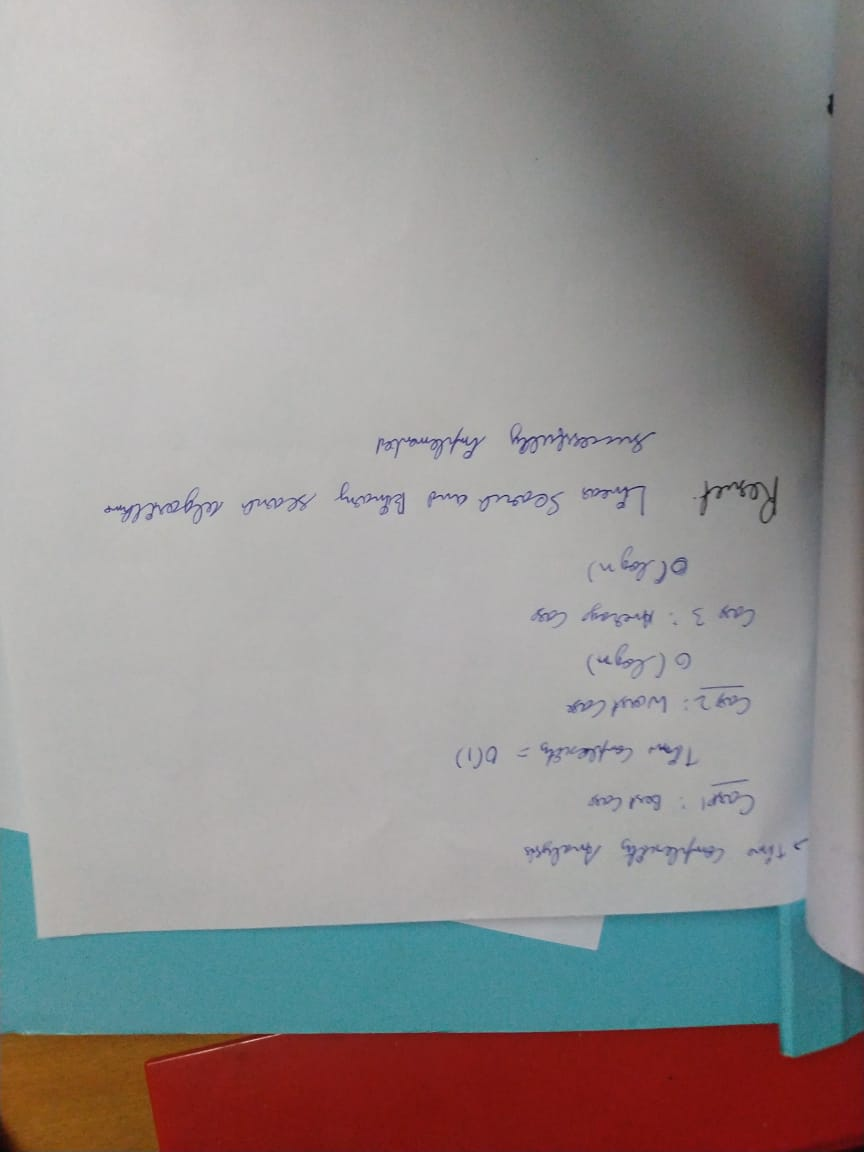 → Time Complexity Analysis
Case 1 : Best Case
Time Complexity = O(1)
Case 2 : Worst Case
O(log n)
Case 3 : Average Case
O(log n)
Result Linear Search and Binary search algorithms
successfully Implemented